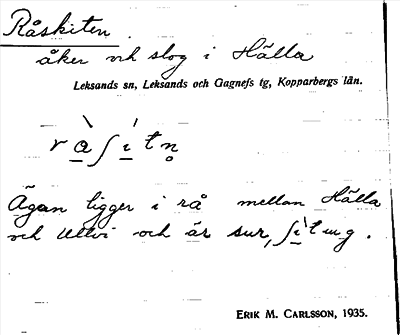 Råskiten.
åker och slog i Hälla
Leksands sn, Leksands och Gagnefs tg, Kopparbergs län.
Ägan ligger i rå mellan Hälla
och Ullvi och är sur,
ERIK M. CARLSSON, 1935.